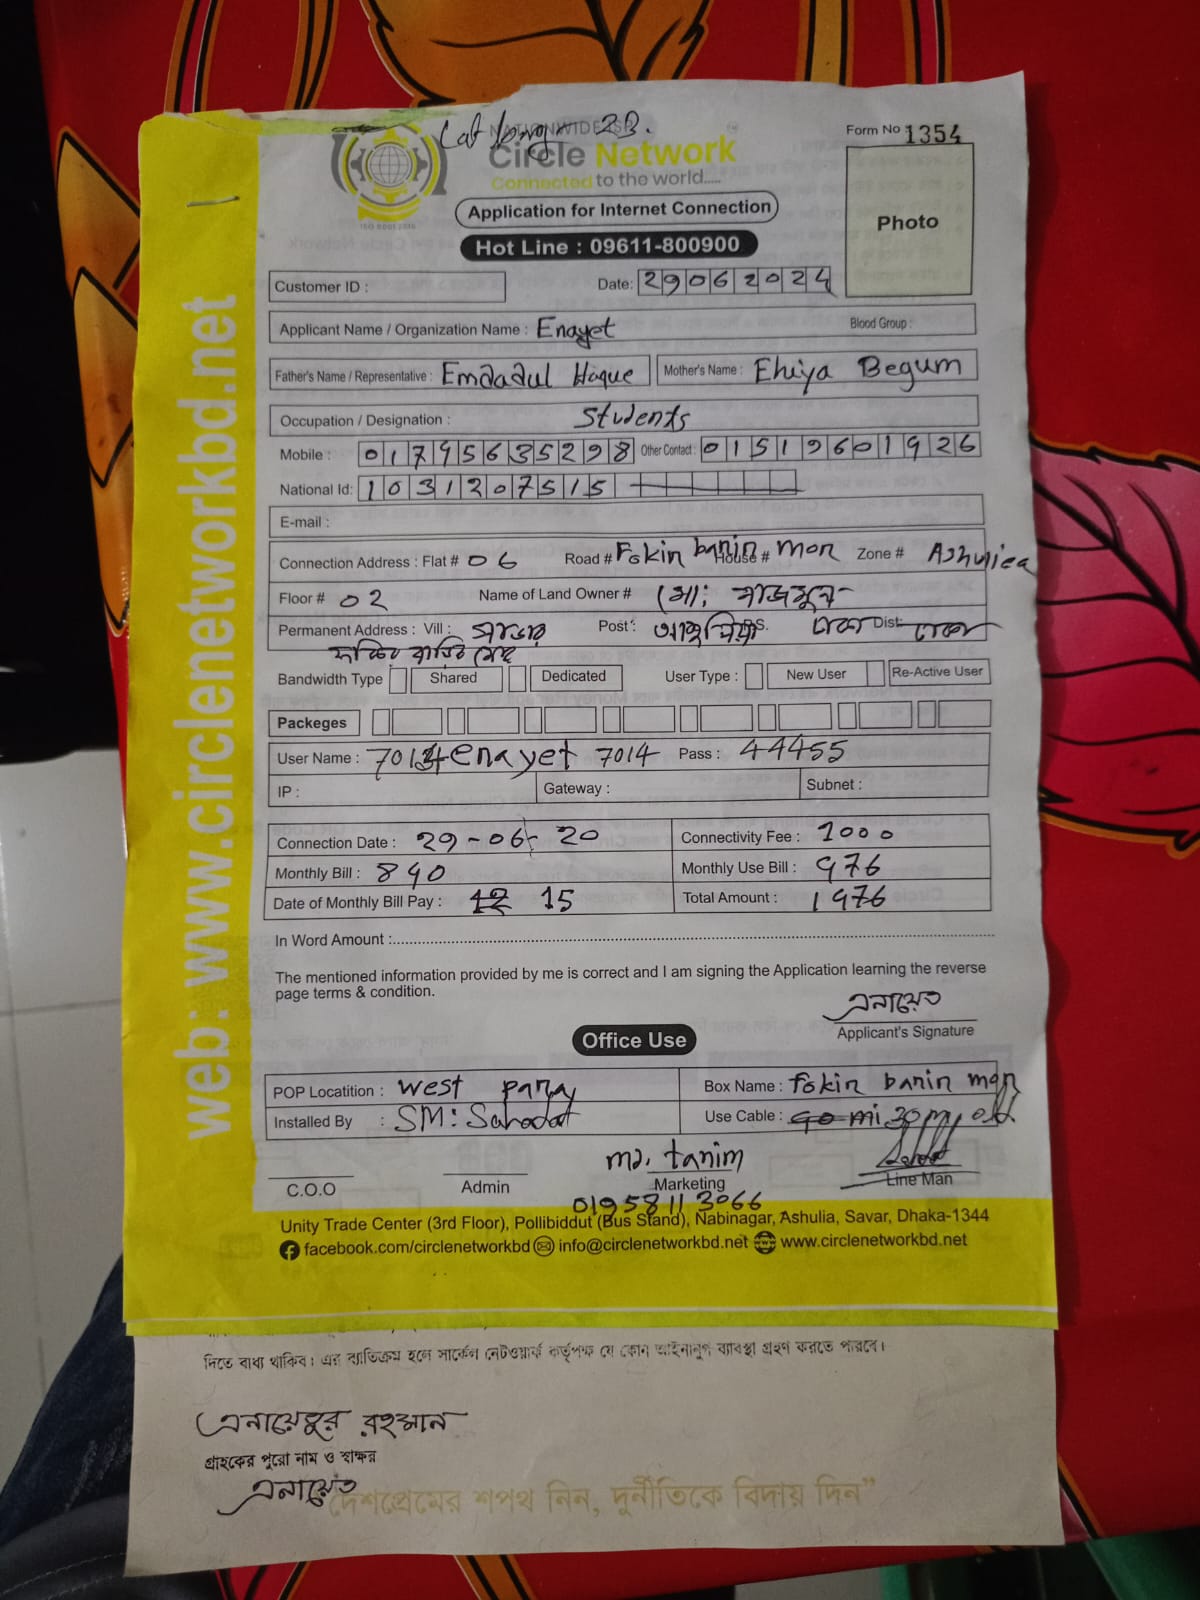 Cat 23.
NATIONWIDE ISP
Circle Network
Connected to the world.....
ISO 9001:2015
Form No 1354
Photo
Application for Internet Connection
Hot Line : 09611-800900
Customer ID :
Date: 29062024
Applicant Name / Organization Name : Enayet Blood Group :
Father's Name / Representative : Emdadul Haque Mother's Name : Ehiya Begum
Occupation / Designation : Students
Mobile : 01795635298 Other Contact : 01519601926
National Id: 1031207515
E-mail :
Connection Address : Flat # 06 Road # Fokin banin House # mor Zone # Ashuliea
Floor # 02 Name of Land Owner # মো: নাজমুল
Permanent Address : Vill : সাভার Post : আশুলিয়া P.S. ঢাকা Dist: ঢাকা
ফকির বাড়ির মোড়
Bandwidth Type Shared Dedicated User Type : New User Re-Active User
Packeges
User Name : enayet 7014 Pass : 44455
IP : Gateway : Subnet :
Connection Date : 29-06-20 Connectivity Fee : 1000
Monthly Bill : 840 Monthly Use Bill : 976
Date of Monthly Bill Pay : 12 15 Total Amount : 1976
In Word Amount :
The mentioned information provided by me is correct and I am signing the Application learning the reverse
page terms & condition.
এনায়েত
Applicant's Signature
Office Use
POP Locatition : West para Box Name : fokin banin mor
Installed By : SM: Sahodat Use Cable : 30m old
md. tanim
C.O.O Admin Marketing Line Man
01958113066
Unity Trade Center (3rd Floor), Pollibiddut (Bus Stand), Nabinagar, Ashulia, Savar, Dhaka-1344
facebook.com/circlenetworkbd info@circlenetworkbd.net www.circlenetworkbd.net
web: www.circlenetworkbd.net
দিতে বাধ্য থাকিব। এর ব্যতিক্রম হলে সার্কেল নেটওয়ার্ক কর্তৃপক্ষ যে কোন আইনানুগ ব্যবস্থা গ্রহণ করতে পারবে।
এনায়েতুর রহমান
গ্রাহকের পুরো নাম ও স্বাক্ষর
এনায়েত
দেশপ্রেমের শপথ নিন, দুর্নীতিকে বিদায় দিন”